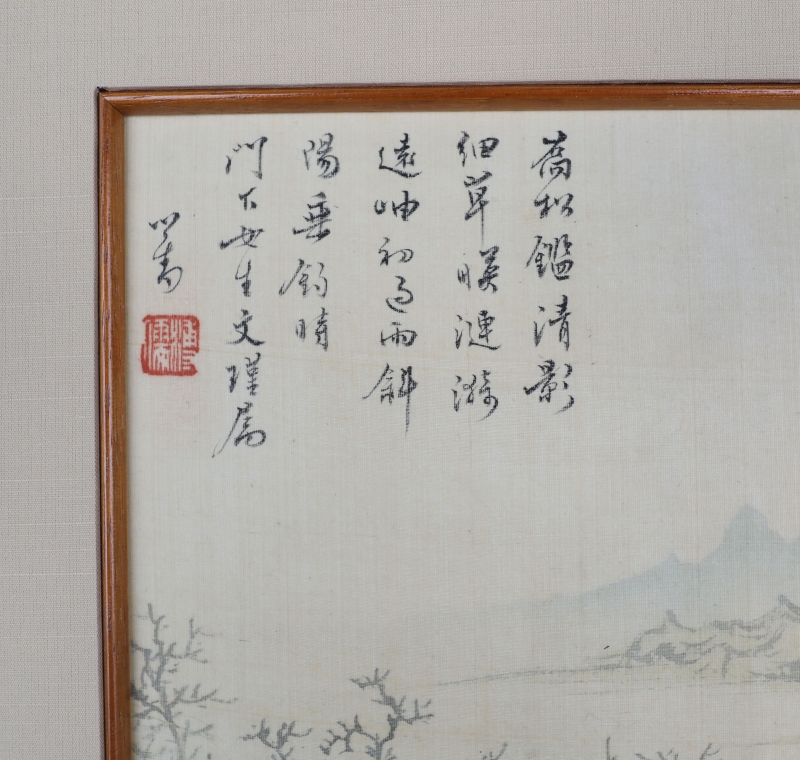 喬松鑑清影
細草暎漣漪
遠岫初過雨斜
陽垂釣時
門下女生文瑾屬
溥儒